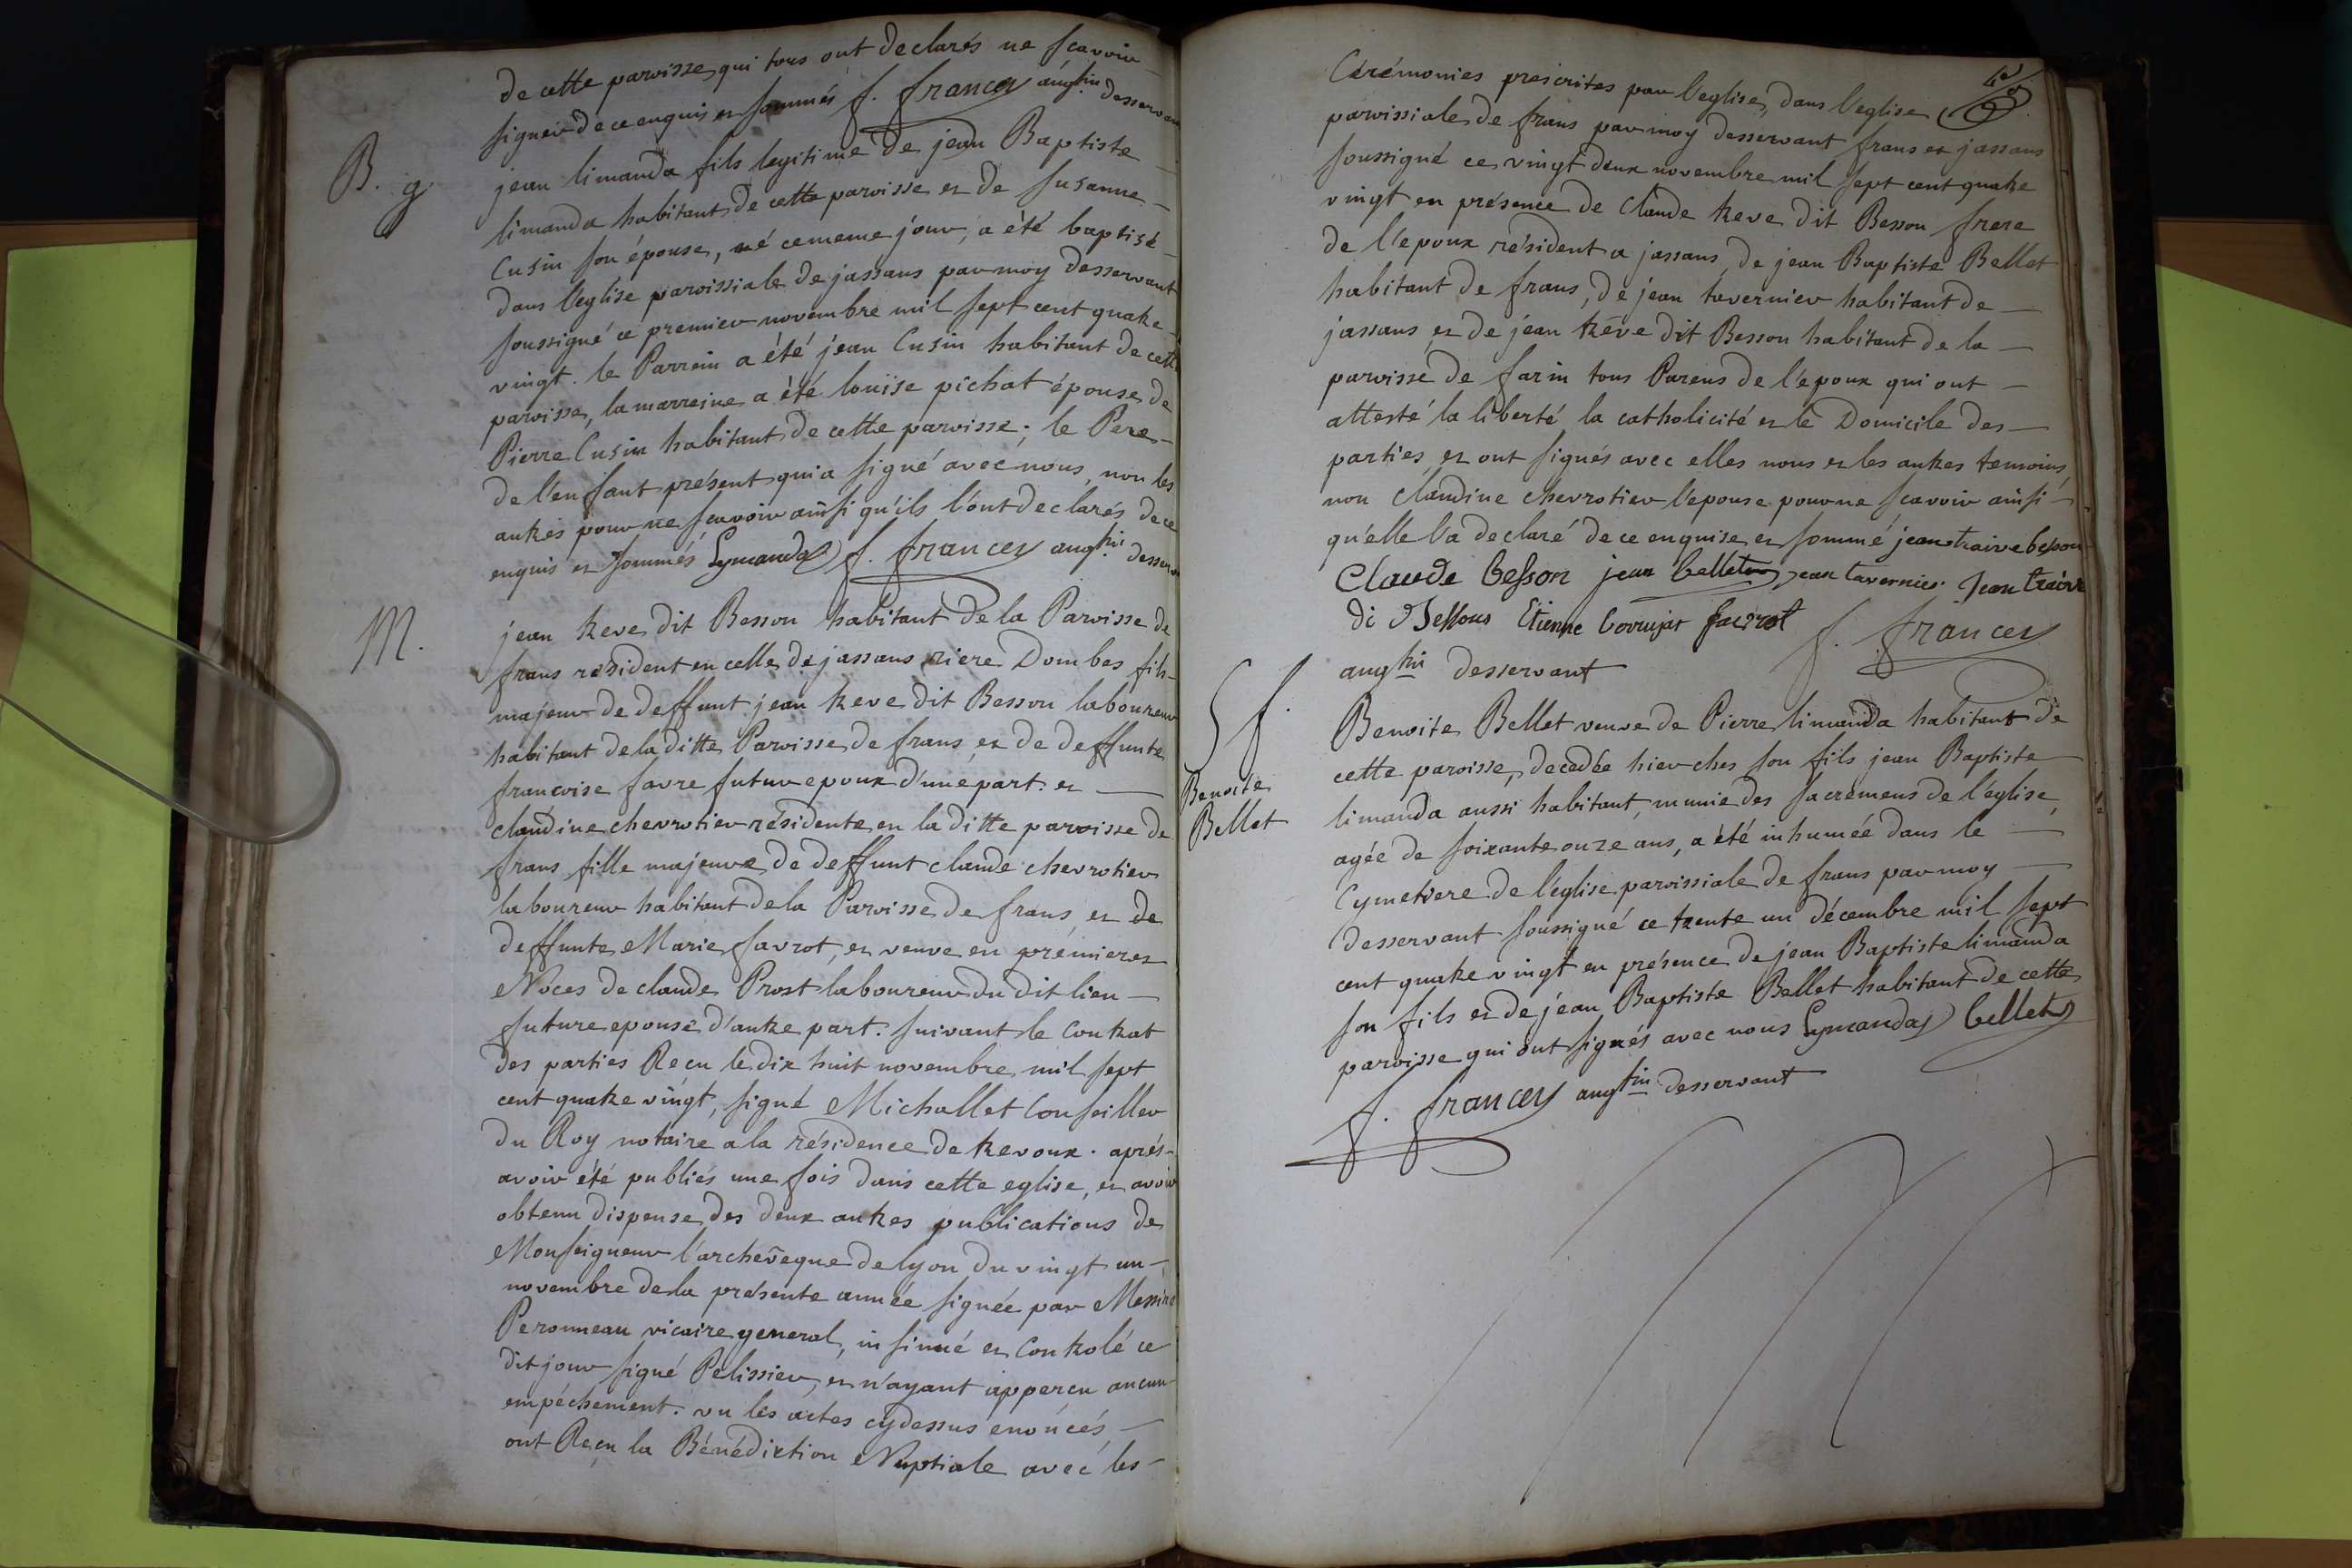 de cette paroisse, qui tous ont declarés ne scavoir
signer de ce enquis et sommés f. francès augtin desservant
B. g.
jean limanda fils legitime de jean Baptiste
limanda habitant de cette paroisse et de susanne
Cusin son épouse, né ce meme jour, a été baptisé
dans l'église paroissiale de jassans par moy desservant
soussigné ce premier novembre mil sept cent quatre
vingt. le Parrein a été jean Cusin habitant de cette
paroisse, la marreine a été louïse pichat épouse de
Pierre Cusin habitant de cette paroisse; le Pere
de l'enfant présent qui a signé avec nous, non les
autres pour ne scavoir ainsi qu'ils l'ont declarés de ce
enquis et sommés Lymanda f. francès augtin desserv
M.
jean treve dit Besson habitant de la Paroisse de
frans résident en celle de jassans riere Dombes fils
majeur de deffunt jean treve dit Besson laboureur
habitant de la ditte Paroisse de frans et de deffunte
francoise favre futur epoux d'une part. et
claudine chevrotier résidente en la ditte paroisse de
frans fille majeure de deffunt claude chevrotier
laboureur habitant de la Paroisse de frans et de
deffunte Marie favrot, et veuve en prémieres
Noces de claude Prost laboureur du dit lieu
future epouse d'autre part. suivant le Contrat
des parties Reçu le dix huit novembre mil sept
cent quatre vingt, signé Michallet Conseiller
du Roy notaire a la résidence de trevoux. aprés
avoir été publiés une fois dans cette eglise, et avoir
obtenu dispense des deux autres publications de
Monseigneur l'archevêque de lyon du vingt un
novembre de la présente année signée par Messire
Peronneau vicaire general, insinué et Controlé ce
dit jour signé Pelissier, et n'ayant apperçu aucun
empéchement. vu les actes cydessus enoncés,
ont Reçu la Bénédiction Nuptiale avec les
Cérémonies prescrites par l'eglise, dans l'eglise
paroissiale de frans par moy desservant frans et jassans
soussigné ce vingt deux novembre mil sept cent quatre
vingt en présence de Claude treve dit Besson frere
de l'epoux résident a jassans, de jean Baptiste Bellet
habitant de frans, de jean tavernier habitant de
jassans et de jean trêve dit Besson habitant de la
paroisse de farin tous Parens de l'epoux qui ont
attesté la liberté la catholicité et le Domicile des
parties et ont signés avec elles nous et les autres temoins
non claudine chevrotier l'epouse pour ne scavoir ainsi
qu'elle l'a declaré de ce enquise et sommé jean traive besson
Claude besson jean bellet jean tavernier Jean traive
di Etienne favrot f. francès
augtin desservant
Sf.
Benoite
Bellet
Benoite Bellet veuve de Pierre limanda habitant de
cette paroisse, decedée hier ches son fils jean Baptiste
limanda aussi habitant, munie des sacremens de l'église,
agée de soixante onze ans, a été inhumée dans le
Cymetiere de l'église paroissiale de frans par moy
desservant soussigné ce trente un décembre mil sept
cent quatre vingt en présence de jean Baptiste limanda
son fils et de jean Baptiste Bellet habitant de cette
paroisse qui ont signés avec nous Lymanda bellet
f. francès augtin desservant